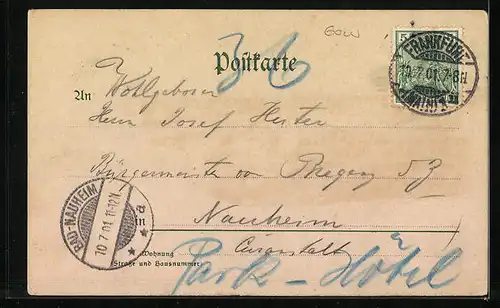 36
Postkarte
An Wohlgeboren
Herr Josef Huter
Bürgermeister von Bregenz
in Nauheim
(Wohnung
Straße und Hausnummer)
Curanstalt
Park-Hôtel
FRANKFURT
(MAIN) 1.
10.7.01. 7-8N
BAD-NAUHEIM
10.7.01. 11-12N
a